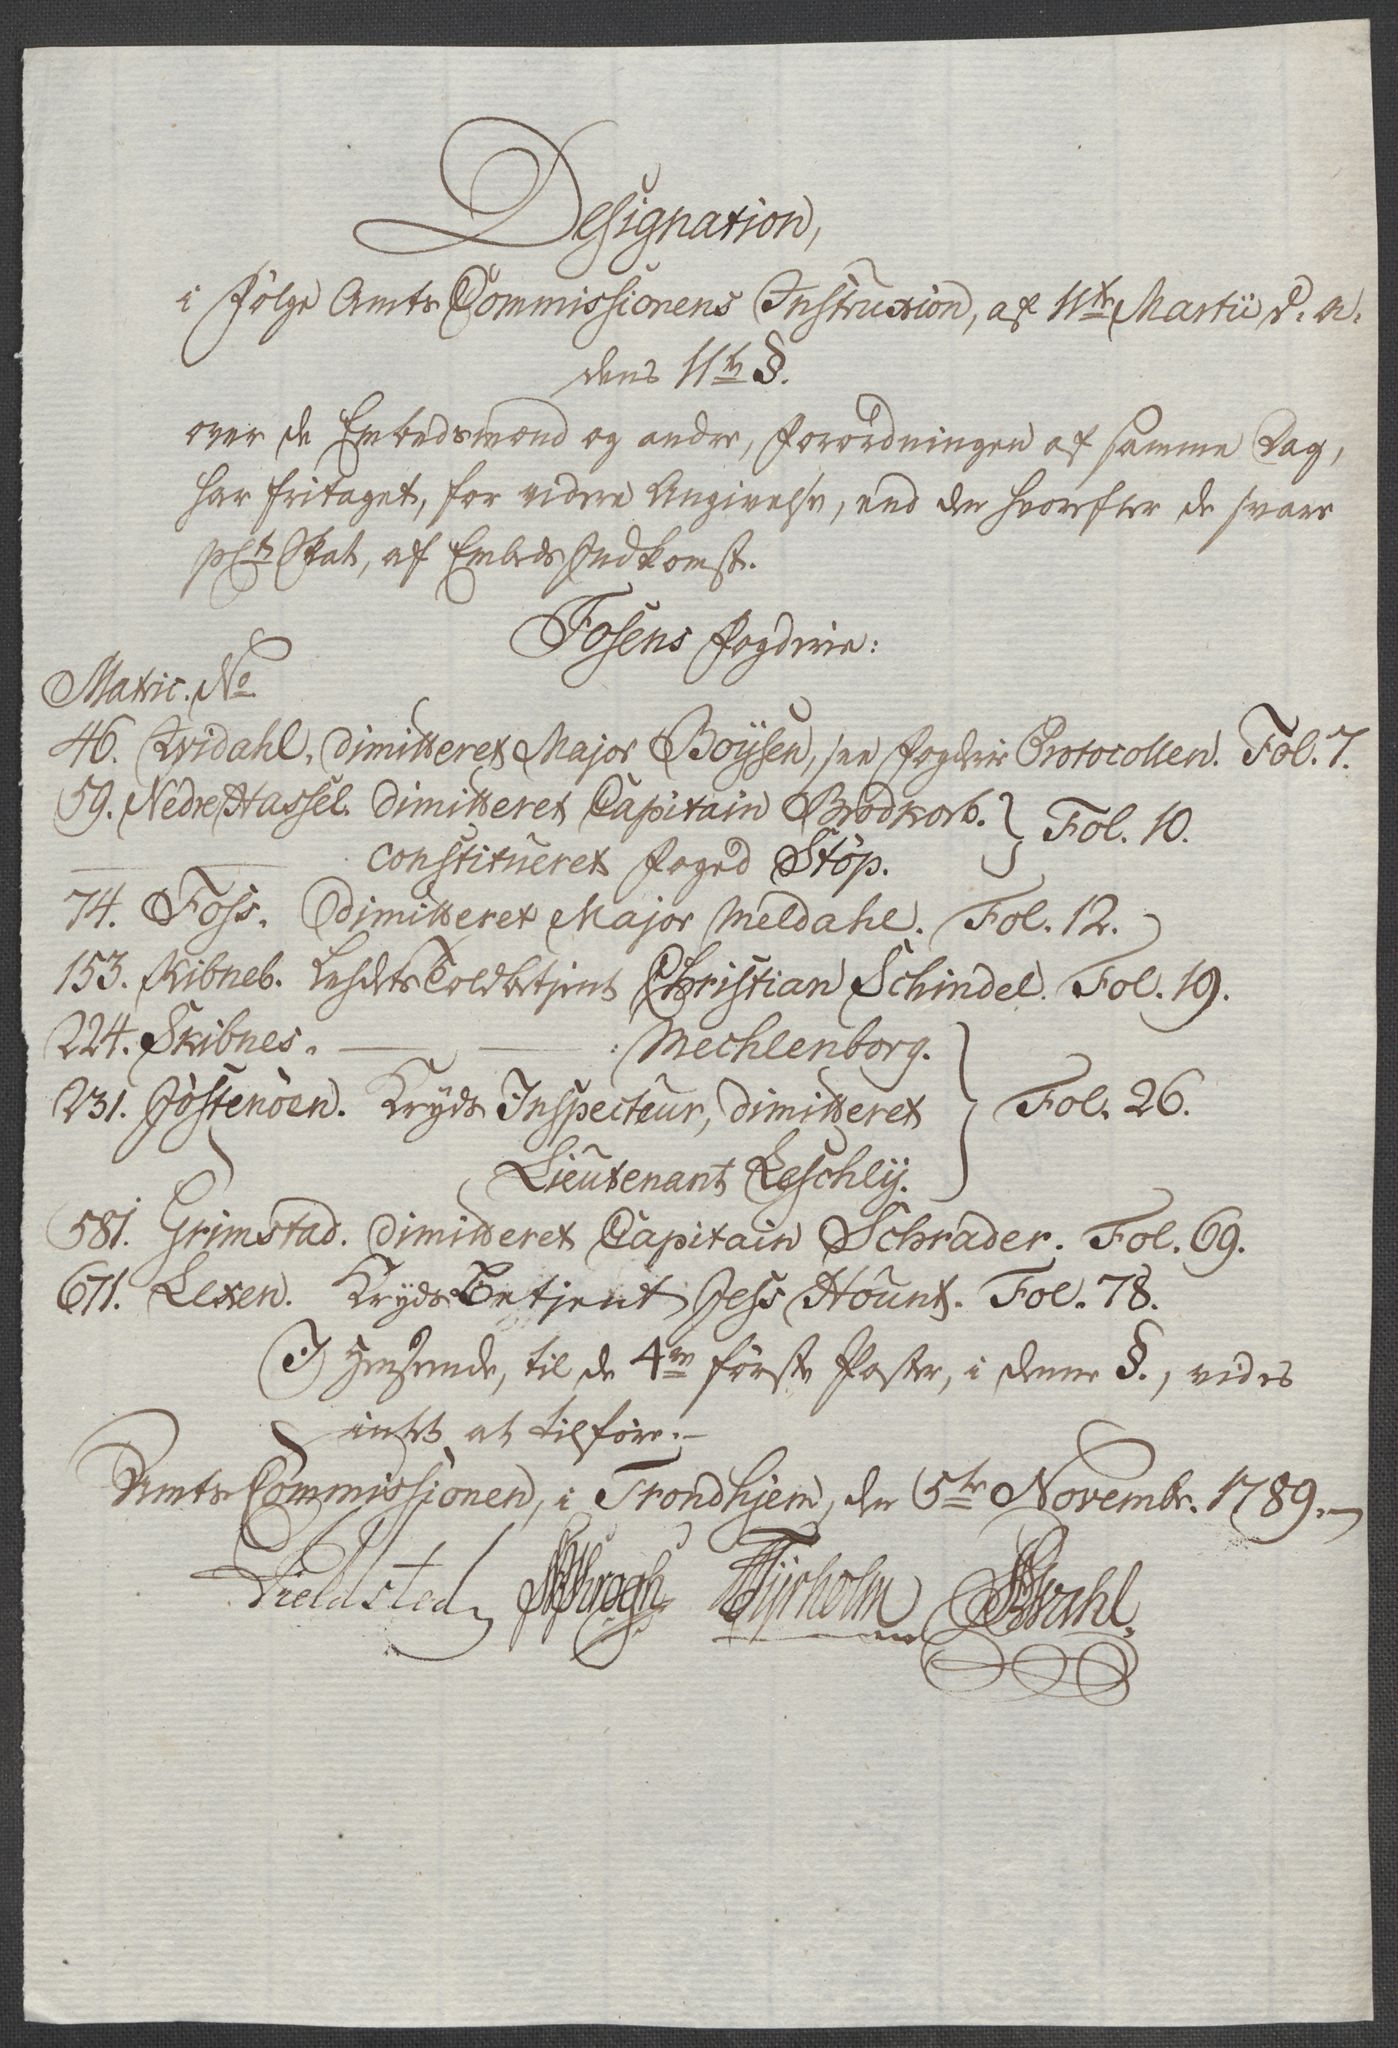 Designation,
i Følge Amts Commissionens Instruxion, af 11te Martii d. a.
dens 11te §.
over de Embedsmænd og andre, Forordningen af samme Dag,
har fritaget, for videre Angivelse, end den hvorefter de svare
pCt Skat, af Embeds Indkomst.
Fosens Fogderie:
Matric. No
46. Qvidahl. Dimitteret Major Boÿsen, see Fogderie Protocollen. Fol. 7.
59. Nedre Hassel. Dimitteret Capitain Brodkorb. } Fol. 10.
constitueret Foged Stöp.
74. Foss. Dimitteret Major Meldahl. Fol. 12.
153. Kibneb. Toldbetjent Christian Schindel. Fol. 19.
224. Skibnes. — — : Mechlenborg.
231. Jöstenöen. Kryds Inspecteur, dimitteret } Fol. 26.
Lieutenant Leschlÿ.
581. Grimstad. dimitteret Capitain Schrader. Fol. 69.
671. Lexen. Kryds Betjent Jess Hount. Fol. 78.
I Henseende, til de 4re første Poster, i denne §., vides
intet at tilføre.—
Amts Commissionen, i Trondhjem, den 5te Novembr. 1789.—
Fieldsted Krogh Tÿrholm Wahl.